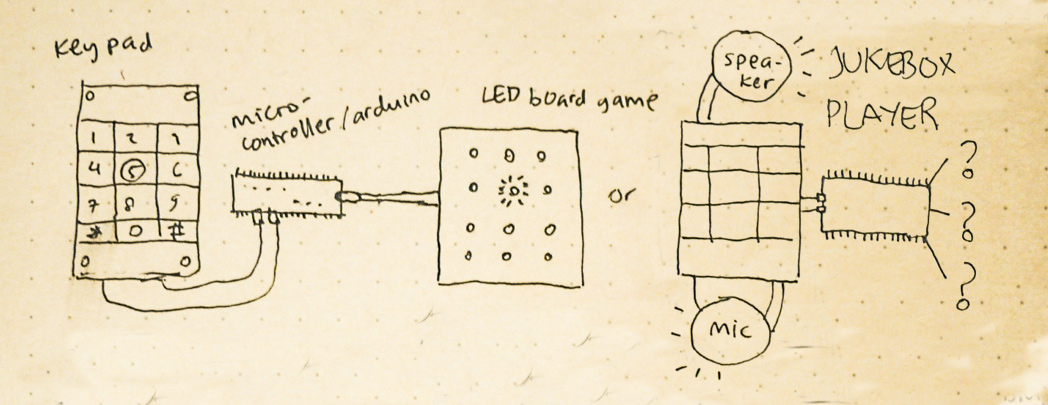 Keypad
1 2 3
4 5 6
7 8 9
* 0 #
micro-
controller/arduino
LED board game
or
spea-
ker
JUKEBOX
PLAYER
mic
?
?
?